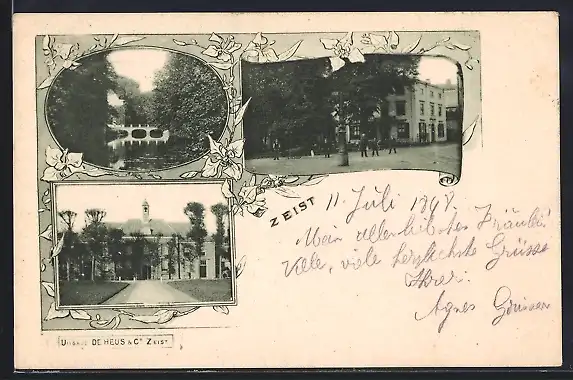 ZEIST
11. Juli 1898
Mein allerliebstes Fräulein
Viele, viele herzlichste Grüsse
Ihrer
Agnes
UITGAVE DE HEUS & Co ZEIST